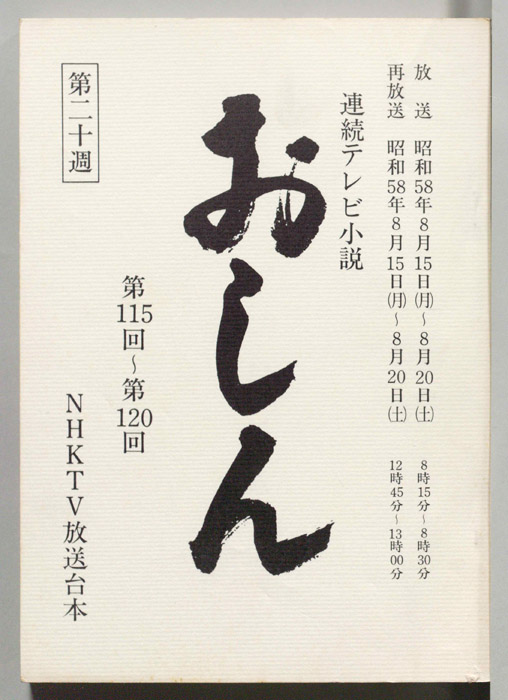 放送　昭和58年8月15日㈪〜8月20日㈯　8時15分〜8時30分
再放送　昭和58年8月15日㈪〜8月20日㈯　12時45分〜13時00分
連続テレビ小説
おしん
第115回〜第120回
第二十週
NHKTV放送台本